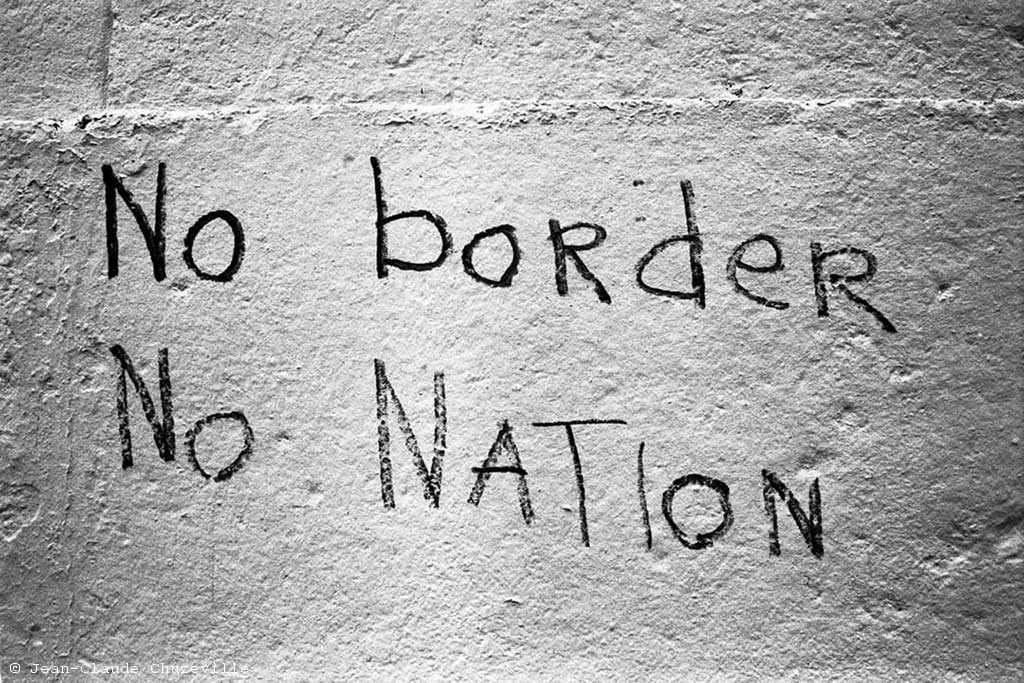 No border
No NATION
© Jean-Claude Chuzeville